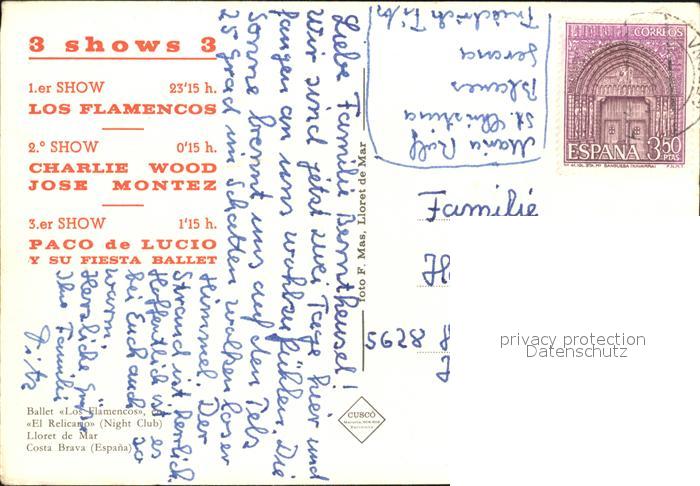 3 shows 3
1.er SHOW 23'15 h.
LOS FLAMENCOS
2.º SHOW 0'15 h.
CHARLIE WOOD
JOSE MONTEZ
3.er SHOW 1'15 h.
PACO de LUCIO
Y SU FIESTA BALLET
Ballet «Los Flamencos»,
«El Relicario» (Night Club)
Lloret de Mar
Costa Brava (España)
Liebe Familie
Wir sind jetzt zwei Tage hier und
fangen an uns wohlzufühlen. Die
Sonne brennt uns auf den Pelz
25 Grad im Schatten wolkenloser
Himmel. Der
Strand ist herrlich.
Hoffentlich ist es
bei Euch auch so
warm.
Herzliche Grüße
Ihre Familie
Fritz
foto F. Mas, Lloret de Mar
CUSCÓ
Maria Rolf
St. Christina
Blanes
Gerona
CORREOS
ESPAÑA 3,50
PTAS
Familie
5628
privacy protection
Datenschutz